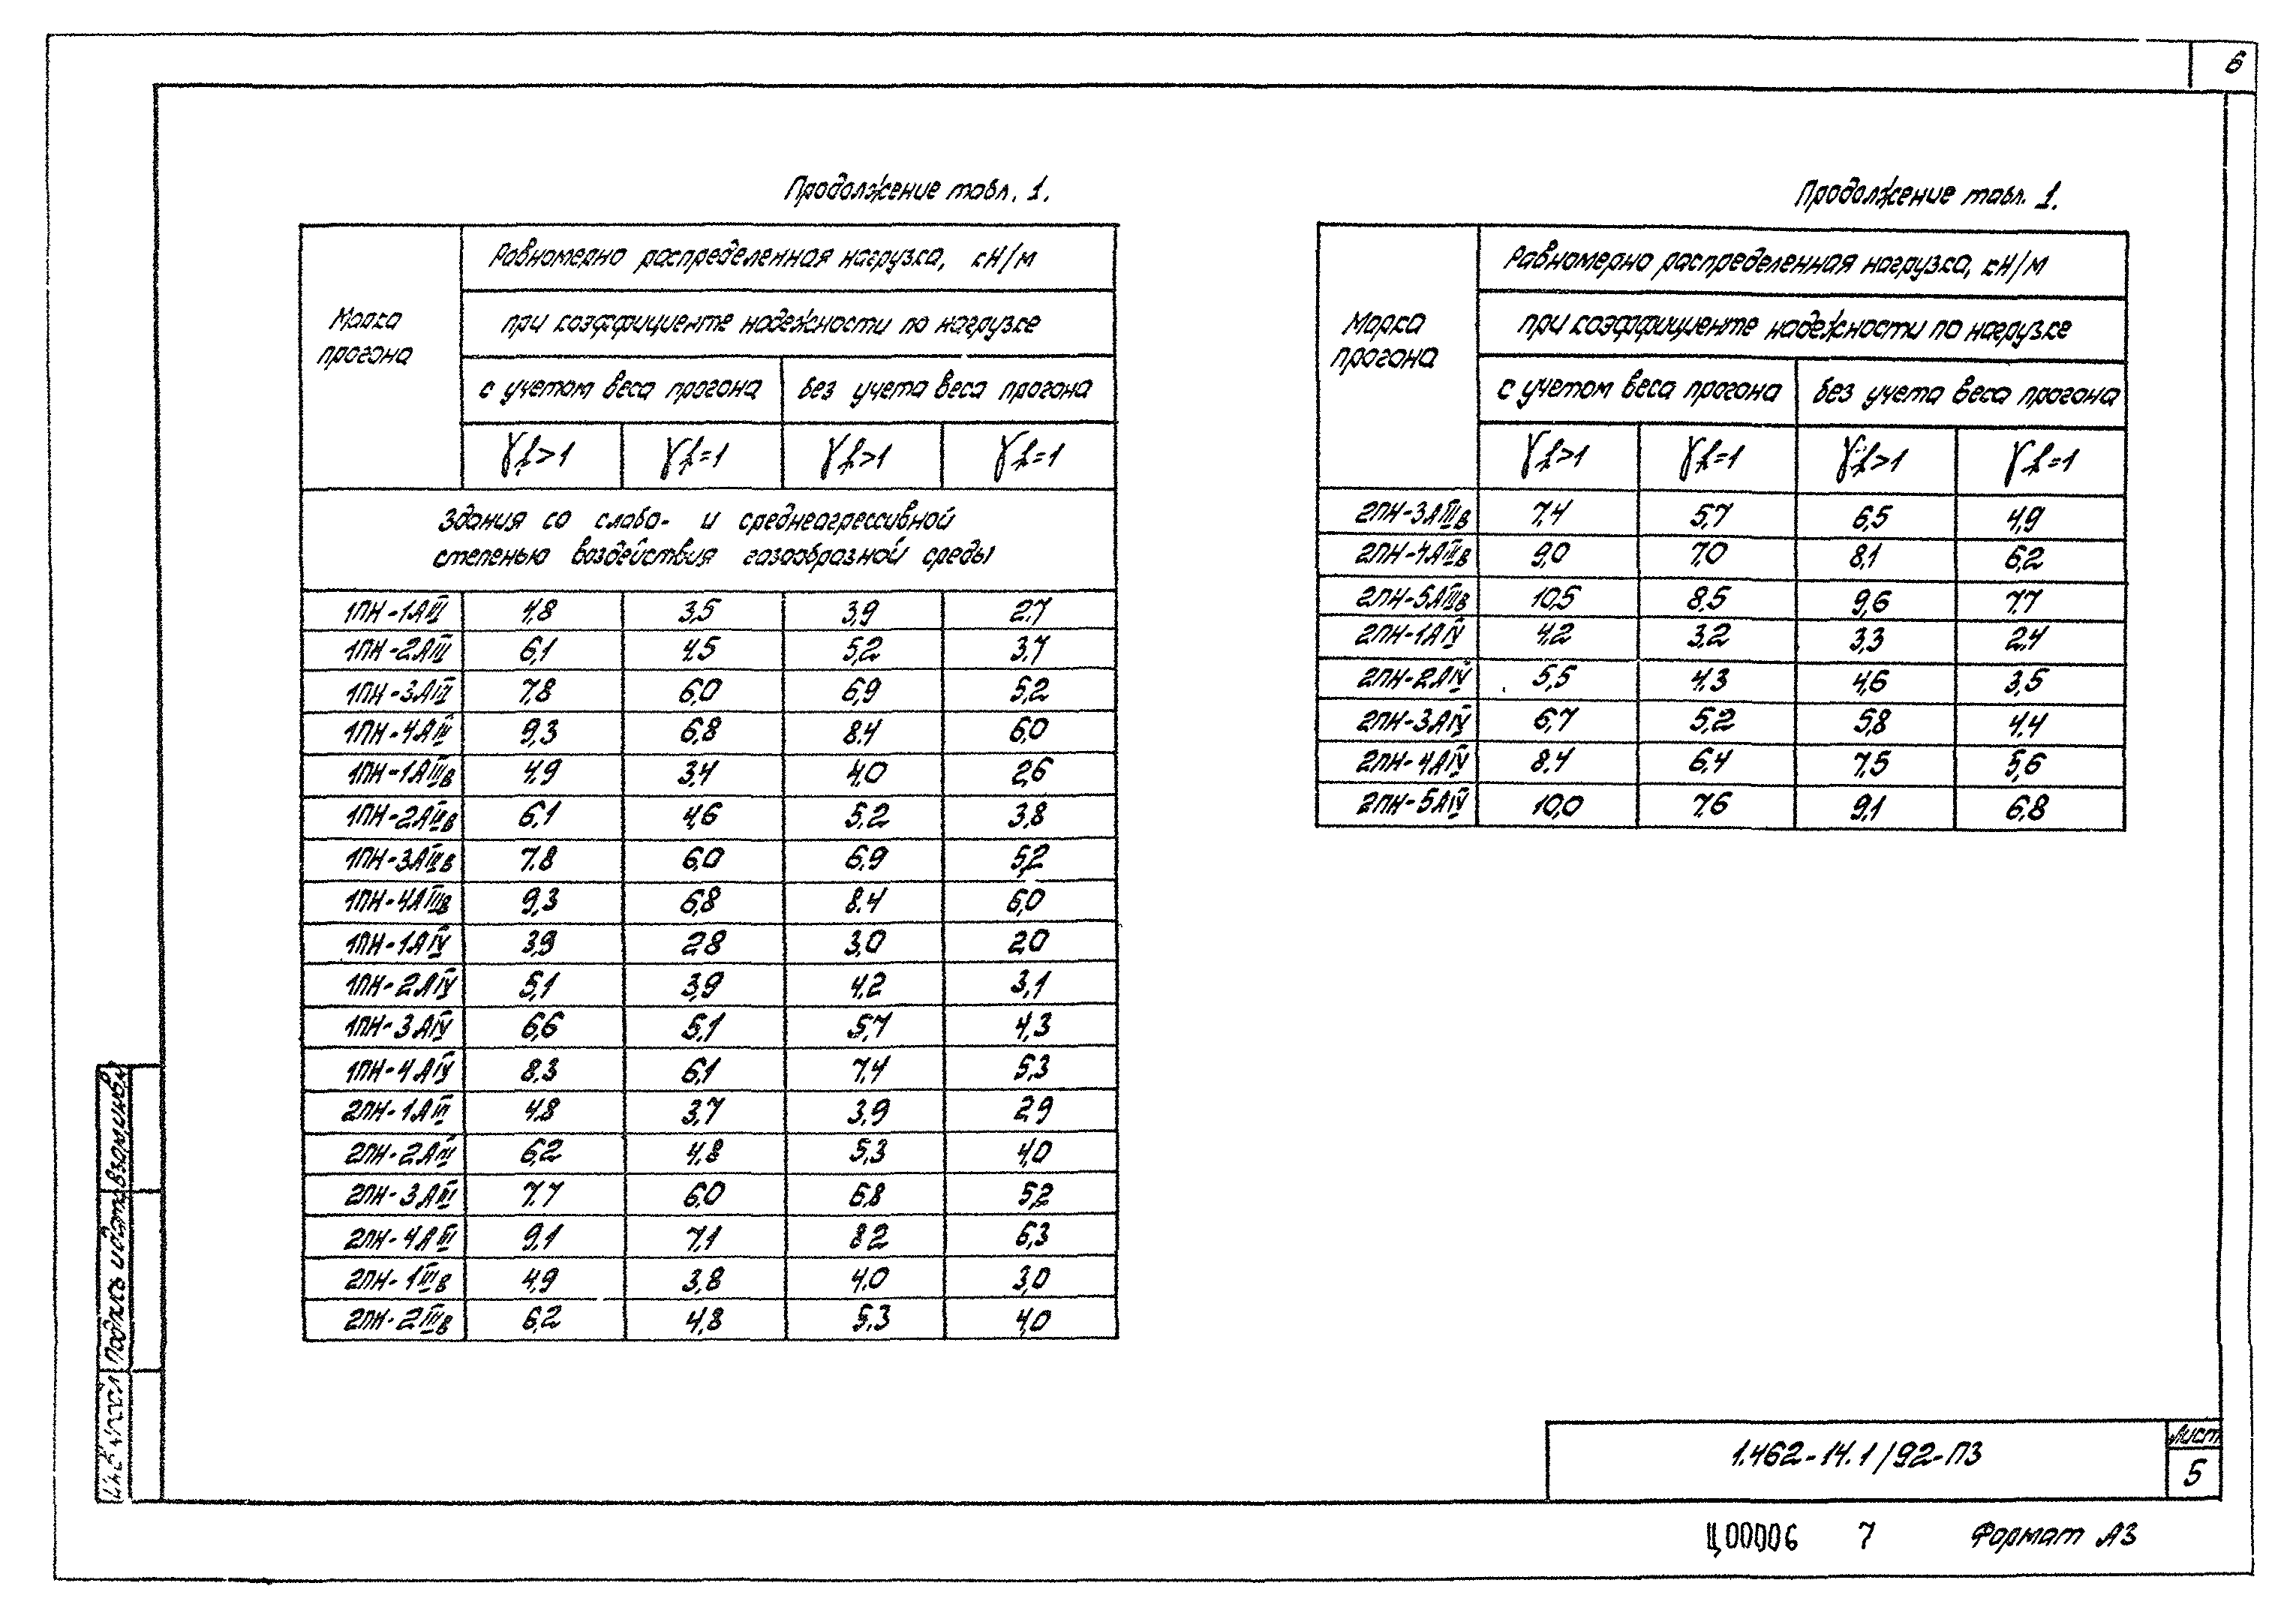 6
Продолжение табл. 1.
Марка прогона
Равномерно распределенная нагрузка, кН/м
при коэффициенте надежности по нагрузке
с учетом веса прогона без учета веса прогона
γf>1 γf=1 γf>1 γf=1
Здания со слабо- и среднеагрессивной
степенью воздействия газообразной среды
1ПН-1АIII 4,8 3,5 3,9 2,7
1ПН-2АIII 6,1 4,5 5,2 3,7
1ПН-3АIII 7,8 6,0 6,9 5,2
1ПН-4АIII 9,3 6,8 8,4 6,0
1ПН-1АIIIв 4,9 3,4 4,0 2,6
1ПН-2АIIIв 6,1 4,6 5,2 3,8
1ПН-3АIIIв 7,8 6,0 6,9 5,2
1ПН-4АIIIв 9,3 6,8 8,4 6,0
1ПН-1АIV 3,9 2,8 3,0 2,0
1ПН-2АIV 5,1 3,9 4,2 3,1
1ПН-3АIV 6,6 5,1 5,7 4,3
1ПН-4АIV 8,3 6,1 7,4 5,3
2ПН-1АIII 4,8 3,7 3,9 2,9
2ПН-2АIII 6,2 4,8 5,3 4,0
2ПН-3АIII 7,7 6,0 6,8 5,2
2ПН-4АIII 9,1 7,1 8,2 6,3
2ПН-1IIIв 4,9 3,8 4,0 3,0
2ПН-2IIIв 6,2 4,8 5,3 4,0
Продолжение табл. 1.
Марка прогона
Равномерно распределенная нагрузка, кН/м
при коэффициенте надежности по нагрузке
с учетом веса прогона без учета веса прогона
γf>1 γf=1 γf>1 γf=1
2ПН-3АIIIв 7,4 5,7 6,5 4,9
2ПН-4АIIIв 9,0 7,0 8,1 6,2
2ПН-5АIIIв 10,5 8,5 9,6 7,7
2ПН-1АIV 4,2 3,2 3,3 2,4
2ПН-2АIV 5,5 4,3 4,6 3,5
2ПН-3АIV 6,7 5,2 5,8 4,4
2ПН-4АIV 8,4 6,4 7,5 5,6
2ПН-5АIV 10,0 7,6 9,1 6,8
Подпись и дата
1.462-14.1/92-ПЗ
Лист
5
Ц00006 7 Формат А3